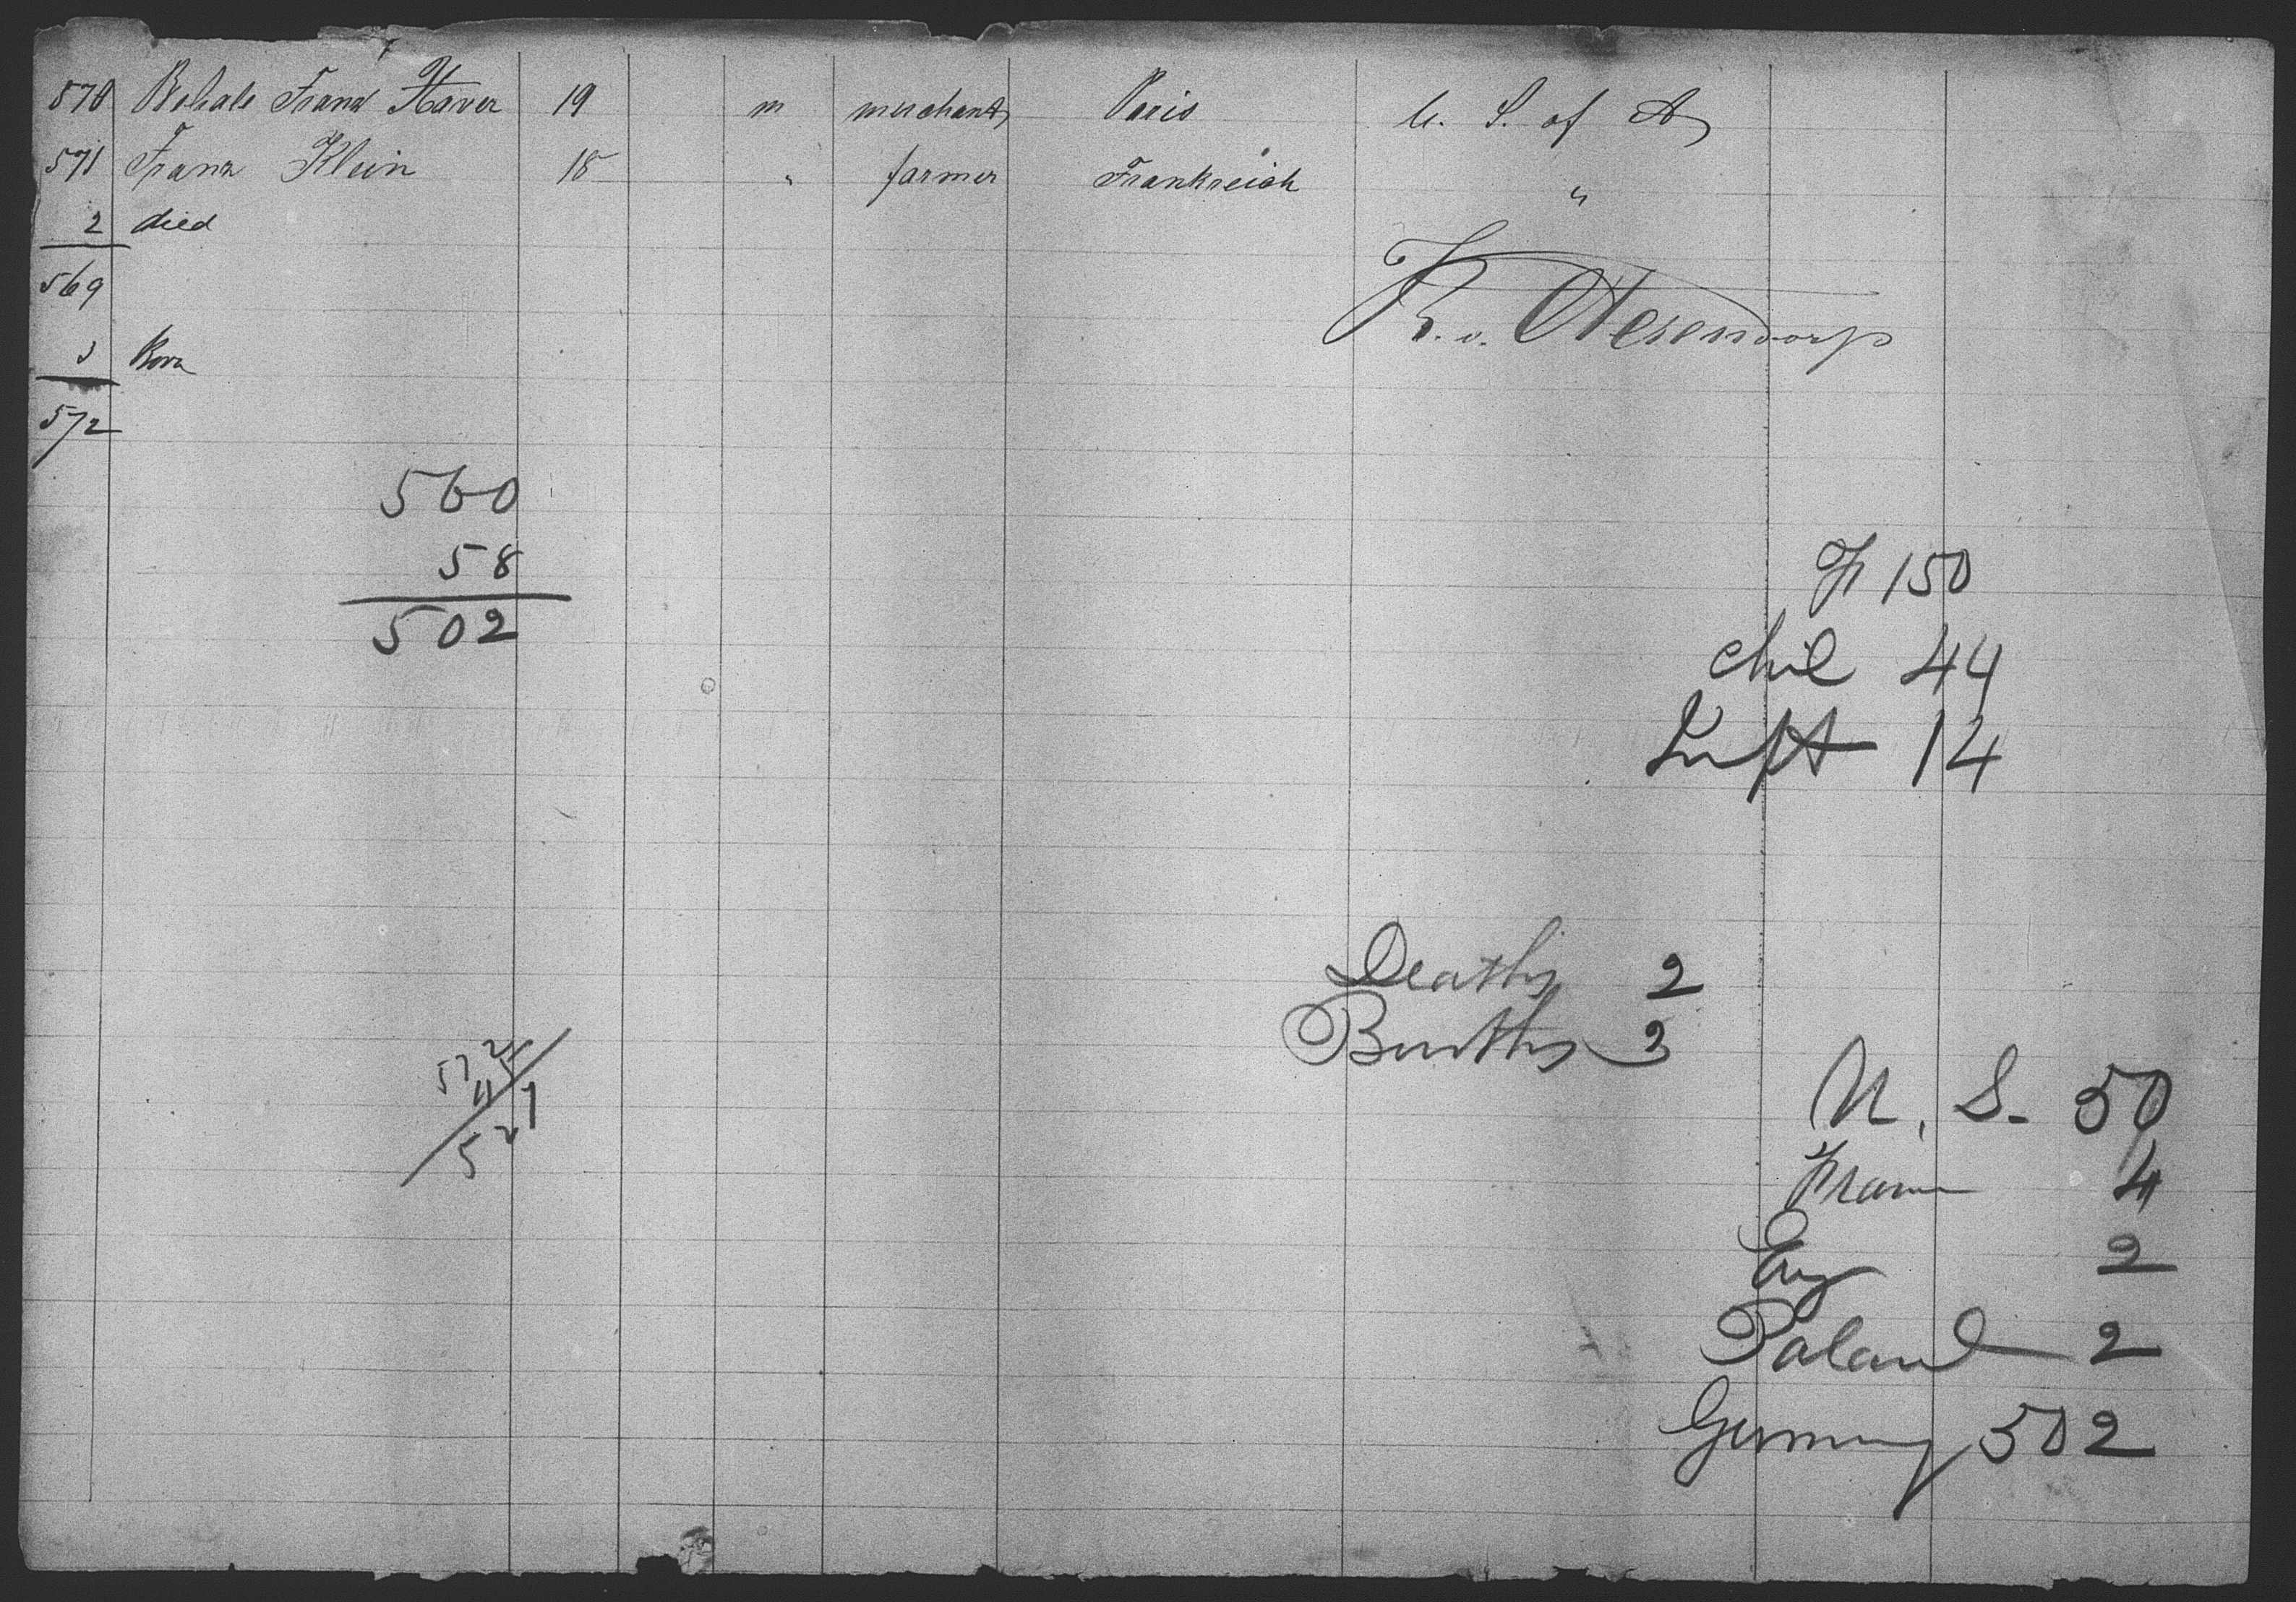 570 Franz Xaver 19 m merchant Paris U. S. of A
571 Franz Klein 18 " farmer Frankreich "
2 died
569
3 Born
572
K. v. Oterendorp
560
58
502
Fr 150
chil 44
Inft 14
Deaths 2
Births 3
572
45
527
U. S. 50
Fran 4
Eng 2
Poland 2
Germany 502